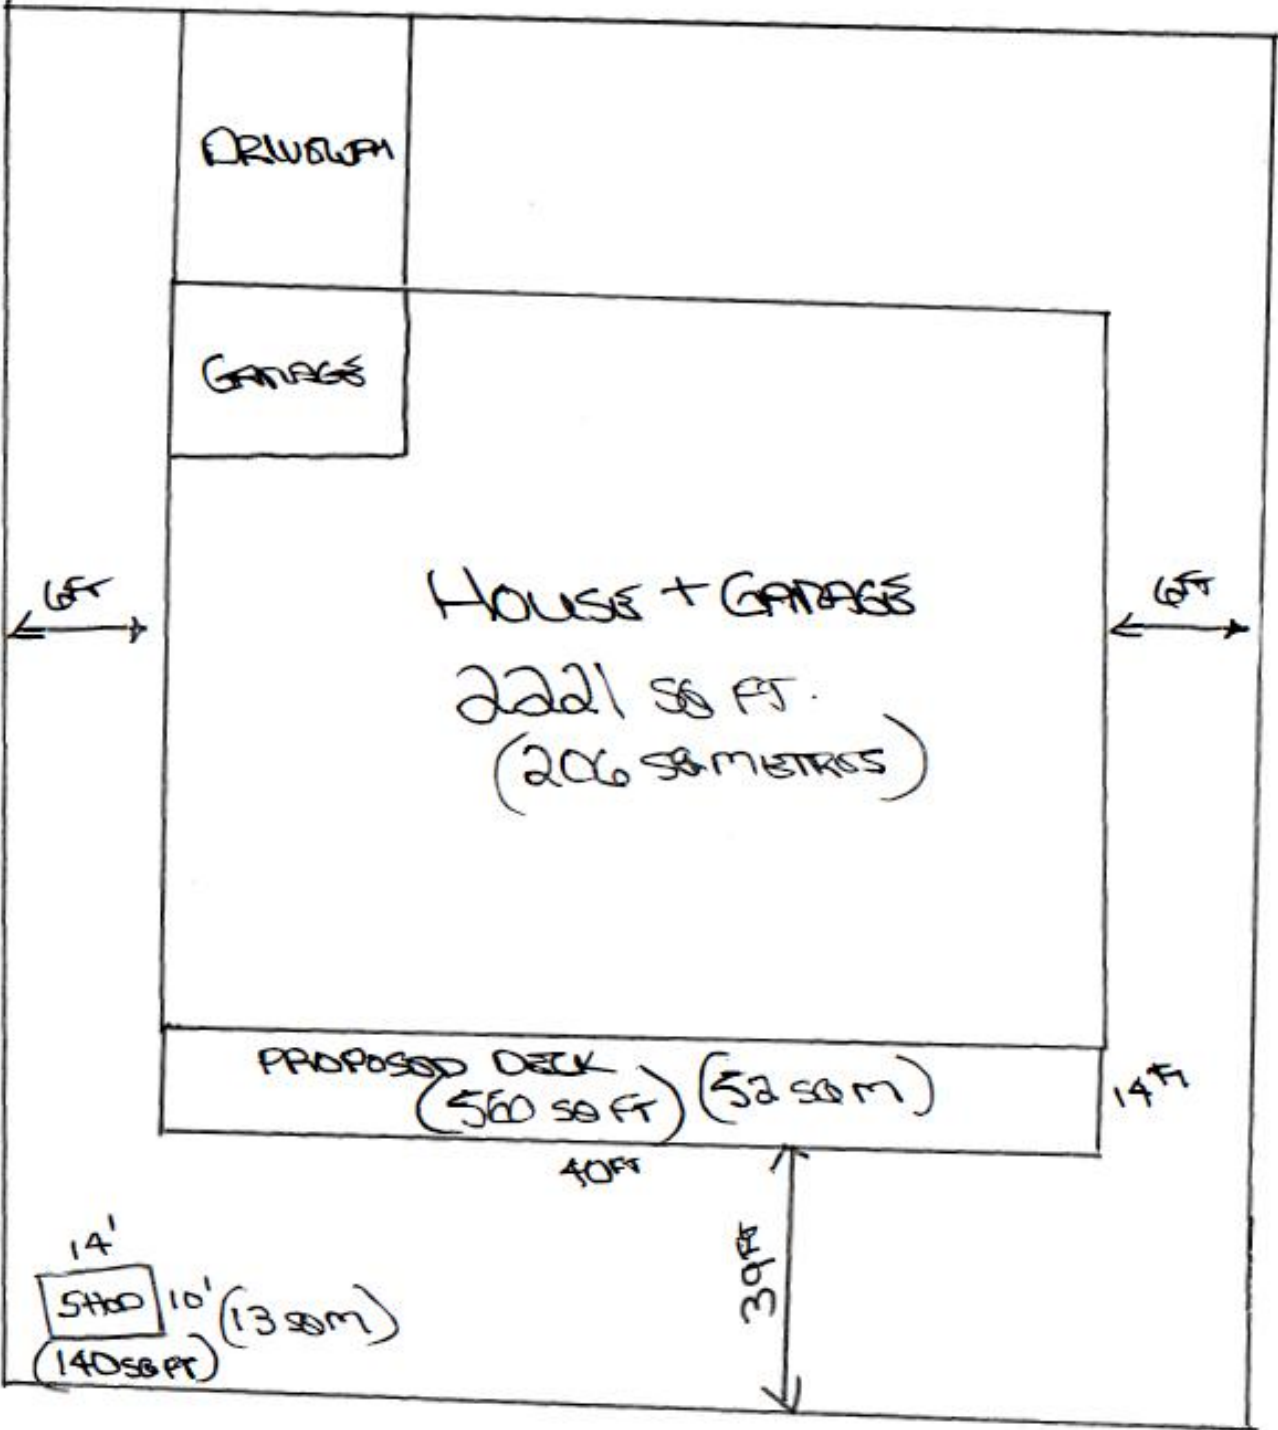 DRIVEWAY
GARAGE
6FT
HOUSE + GARAGE
6FT
2221 SQ FT.
(206 SQ METRES)
PROPOSED DECK
(560 SQ FT) (52 SQ M)
14 FT
40FT
39 FT
14'
SHED 10' (13 SQ M)
(140 SQ FT)